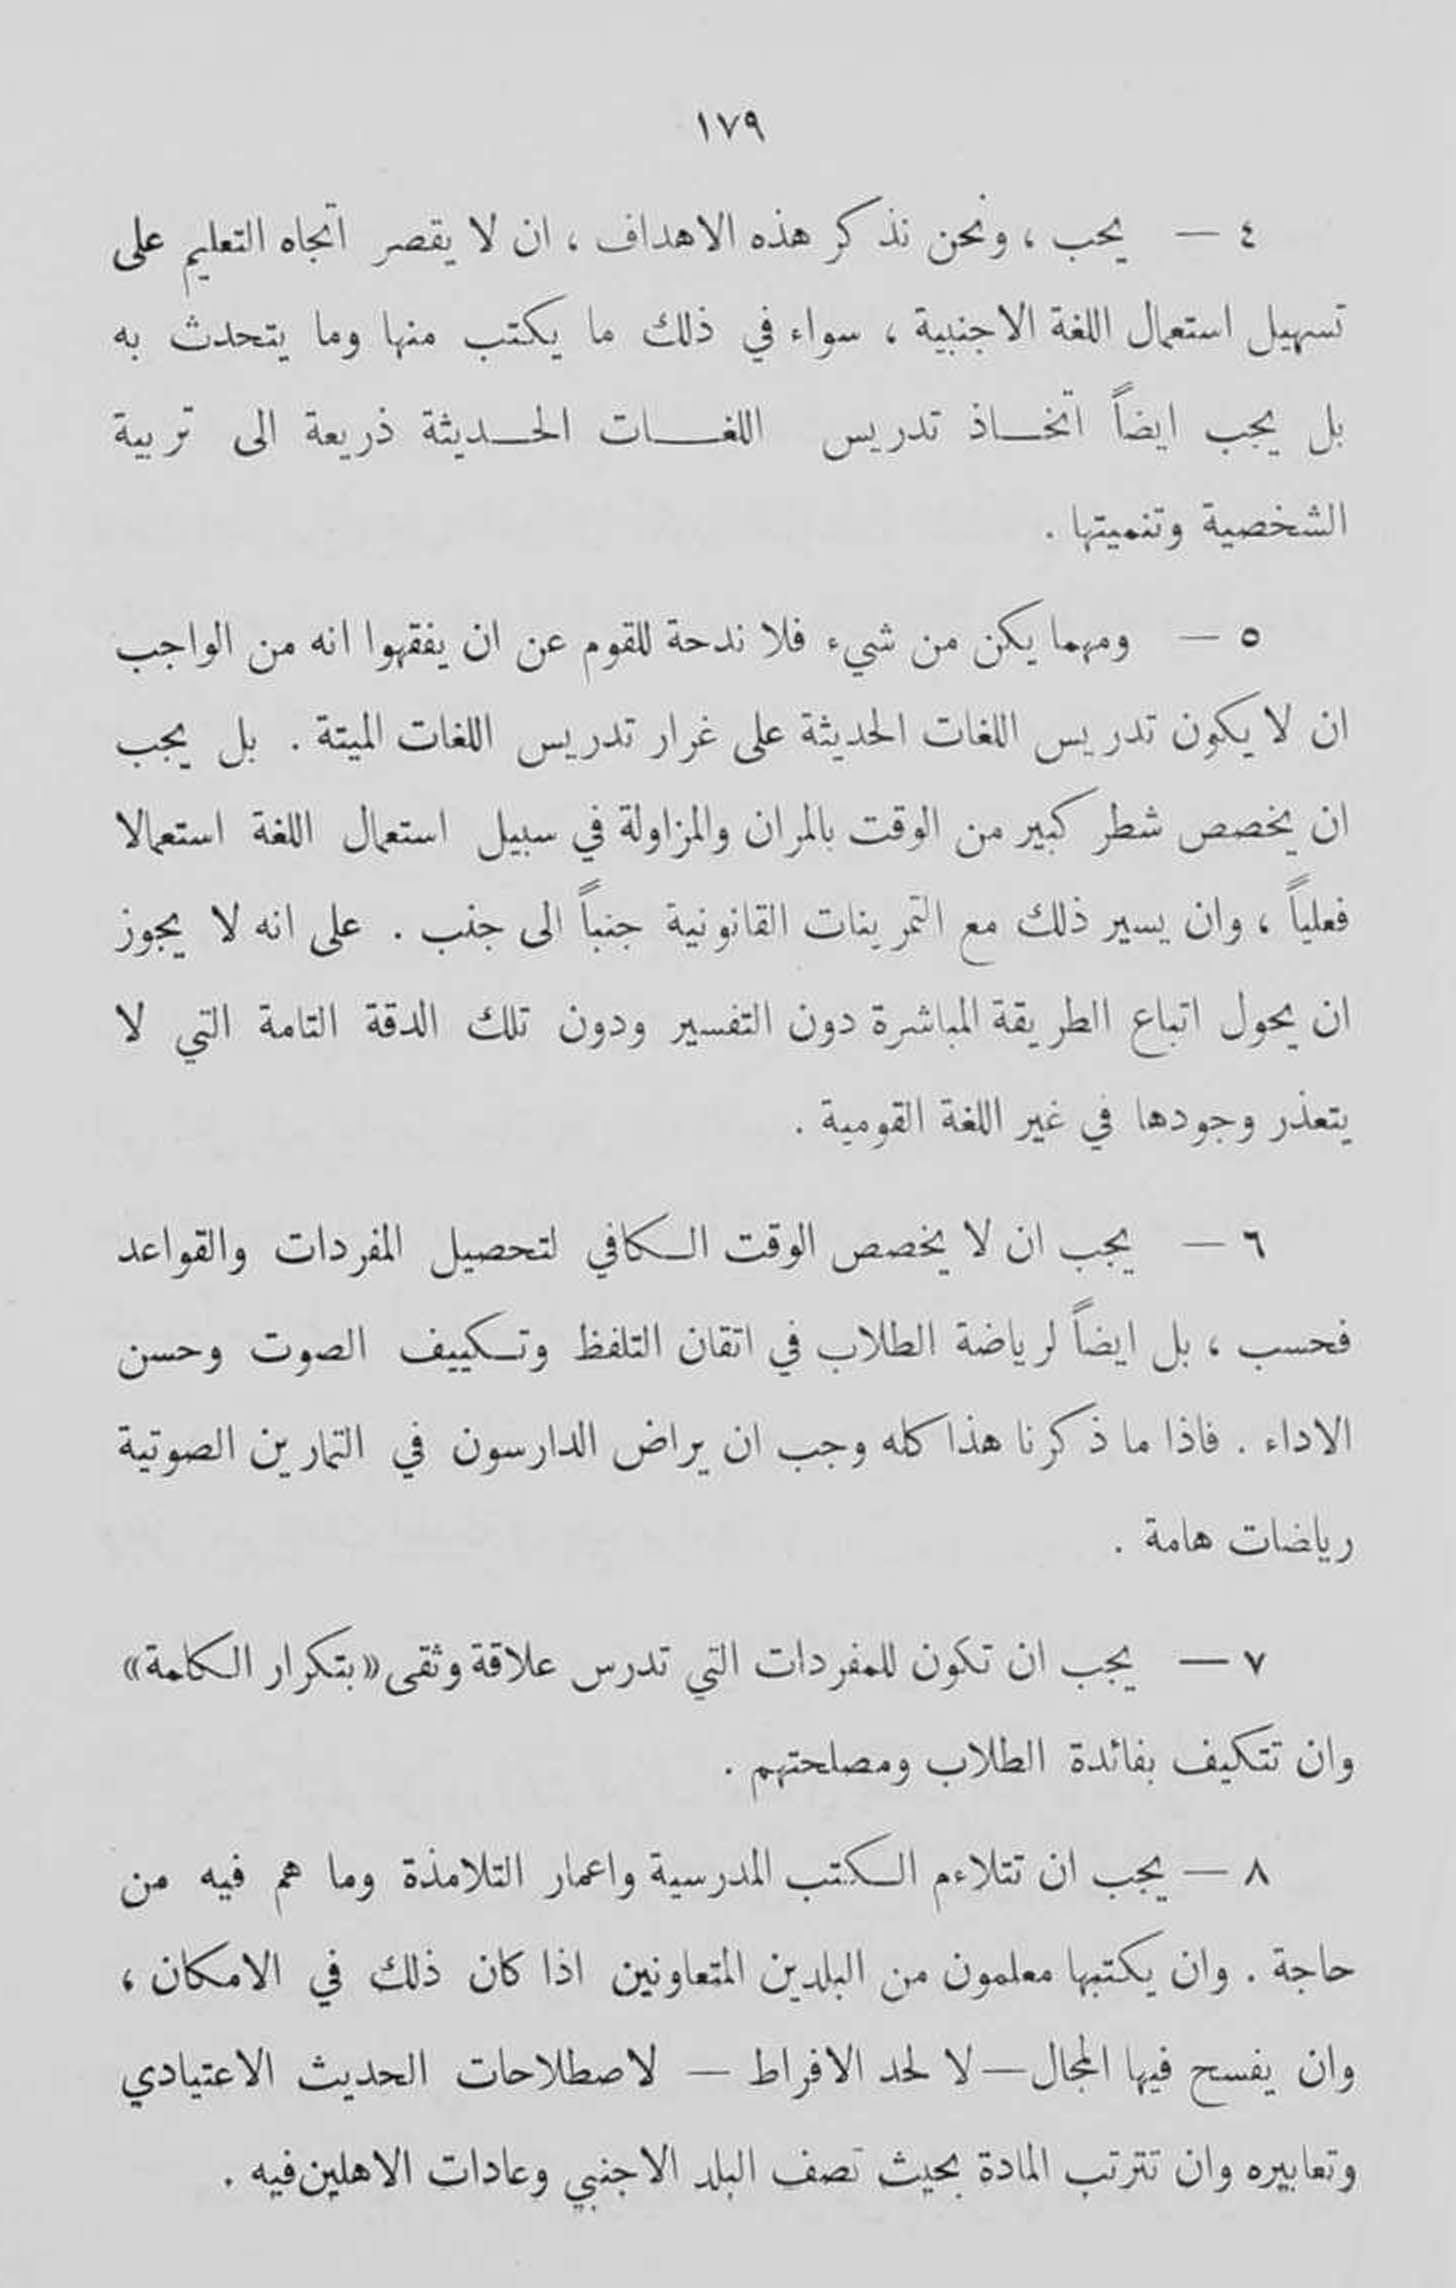 ١٧٩
٤ — يجب ، ونحن نذكر هذه الاهداف ، ان لا يقصر اتجاه التعليم على
تسهيل استعمال اللغة الاجنبية ، سواء في ذلك ما يكتب منها وما يتحدث به
بل يجب ايضاً اتخاذ تدريس اللغات الحديثة ذريعة الى تربية
الشخصية وتنميتها .
٥ — ومهما يكن من شيء فلا ندحة للقوم عن ان يفقهوا انه من الواجب
ان لا يكون تدريس اللغات الحديثة على غرار تدريس اللغات الميتة . بل يجب
ان يخصص شطر كبير من الوقت بالمران والمزاولة في سبيل استعمال اللغة استعمالا
فعلياً ، وان يسير ذلك مع التمرينات القانونية جنباً الى جنب . على انه لا يجوز
ان يحول اتباع الطريقة المباشرة دون التفسير ودون تلك الدقة التامة التي لا
يتعذر وجودها في غير اللغة القومية .
٦ — يجب ان لا يخصص الوقت الكافي لتحصيل المفردات والقواعد
فحسب ، بل ايضاً لرياضة الطلاب في اتقان التلفظ وتكييف الصوت وحسن
الاداء . فاذا ما ذكرنا هذا كله وجب ان يراض الدارسون في التمارين الصوتية
رياضات هامة .
٧ — يجب ان تكون للمفردات التي تدرس علاقة وثقى «بتكرار الكلمة»
وان تتكيف بفائدة الطلاب ومصلحتهم .
٨ — يجب ان تتلاءم الكتب المدرسية واعمار التلامذة وما هم فيه من
حاجة . وان يكتبها معلمون من البلدين المتعاونين اذا كان ذلك في الامكان ،
وان يفسح فيها المجال — لا لحد الافراط — لاصطلاحات الحديث الاعتيادي
وتعابيره وان تترتب المادة بحيث تصف البلد الاجنبي وعادات الاهلين فيه .